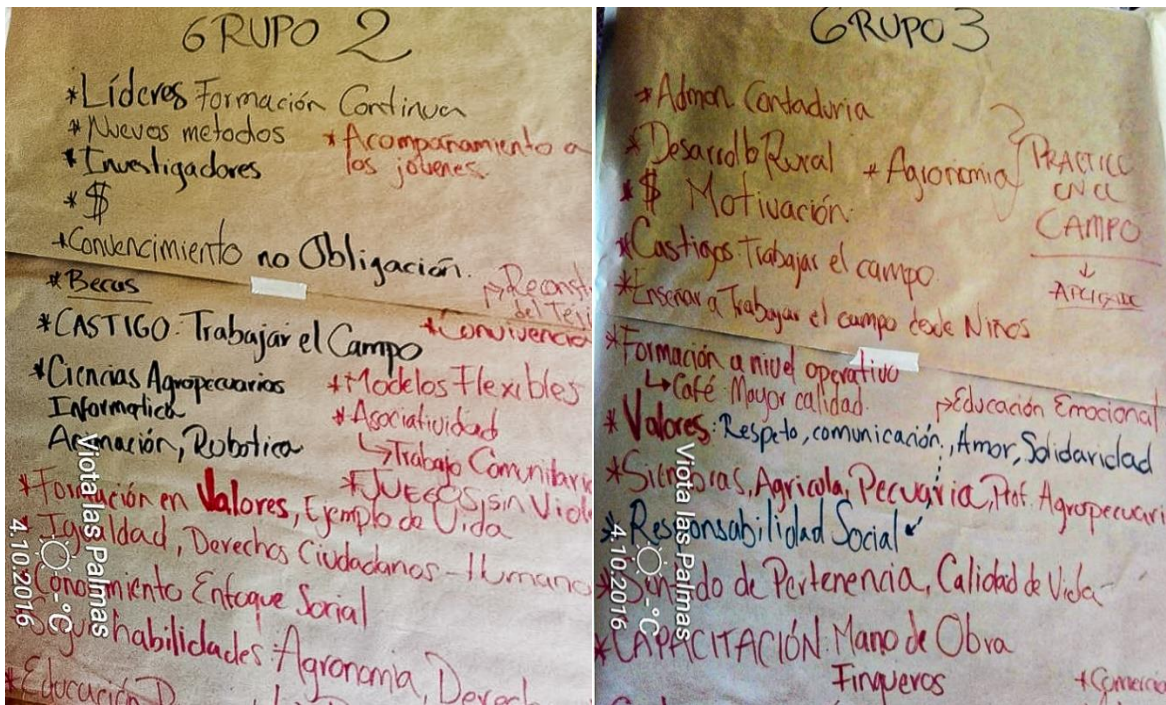 GRUPO 2
*Líderes Formación Continua
*Nuevos metodos
*Acompañamiento a
los jóvenes.
*Investigadores
*$
*Convencimiento no Obligación.
*Becas
*CASTIGO: Trabajar el Campo
*Convivencia
*Ciencias Agropecuarias
Informatica
*Modelos Flexibles
*Asociatividad
↳Trabajo Comunitario
*JUEGOS sin
*Formación en Valores, Ejemplo de Vida
*Igualdad, Derechos Ciudadanos - Humano
Enfoque Social
habilidades: Agronomia,
*Educación
Viota las Palmas
-°C
4.10.2016
GRUPO 3
*Admon. Contaduria
*Desarrollo Rural *Agronomia
PRACTICO
EN EL
CAMPO
↓
*$ Motivación.
*Castigos: Trabajar el campo.
*Enseñar a Trabajar el campo desde Niños
*Formación a nivel operativo
↳Café Mayor calidad.
→Educación Emocional
*Valores: Respeto, comunicación, Amor, Solidaridad
Agricola, Pecuaria, Prof. Agropecuari
*Responsabilidad Social
de Pertenencia, Calidad de Vida
*CAPACITACIÓN: Mano de Obra
Finqueros
*Comercio
Viota las Palmas
-°C
4.10.2016